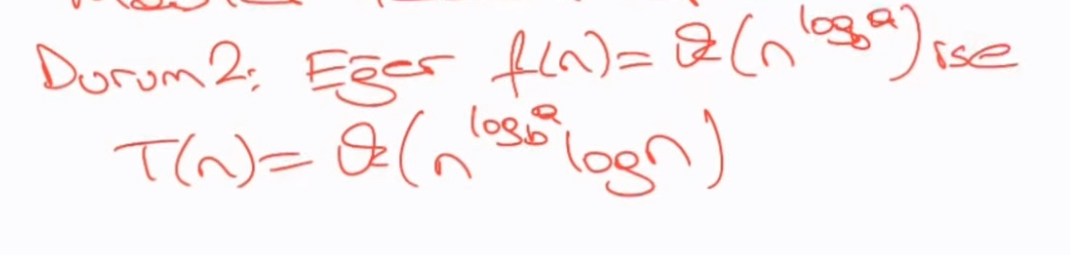 Durum 2: Eğer f(n) = Θ(n^{log_b a}) ise
T(n) = Θ(n^{log_b a} log n)